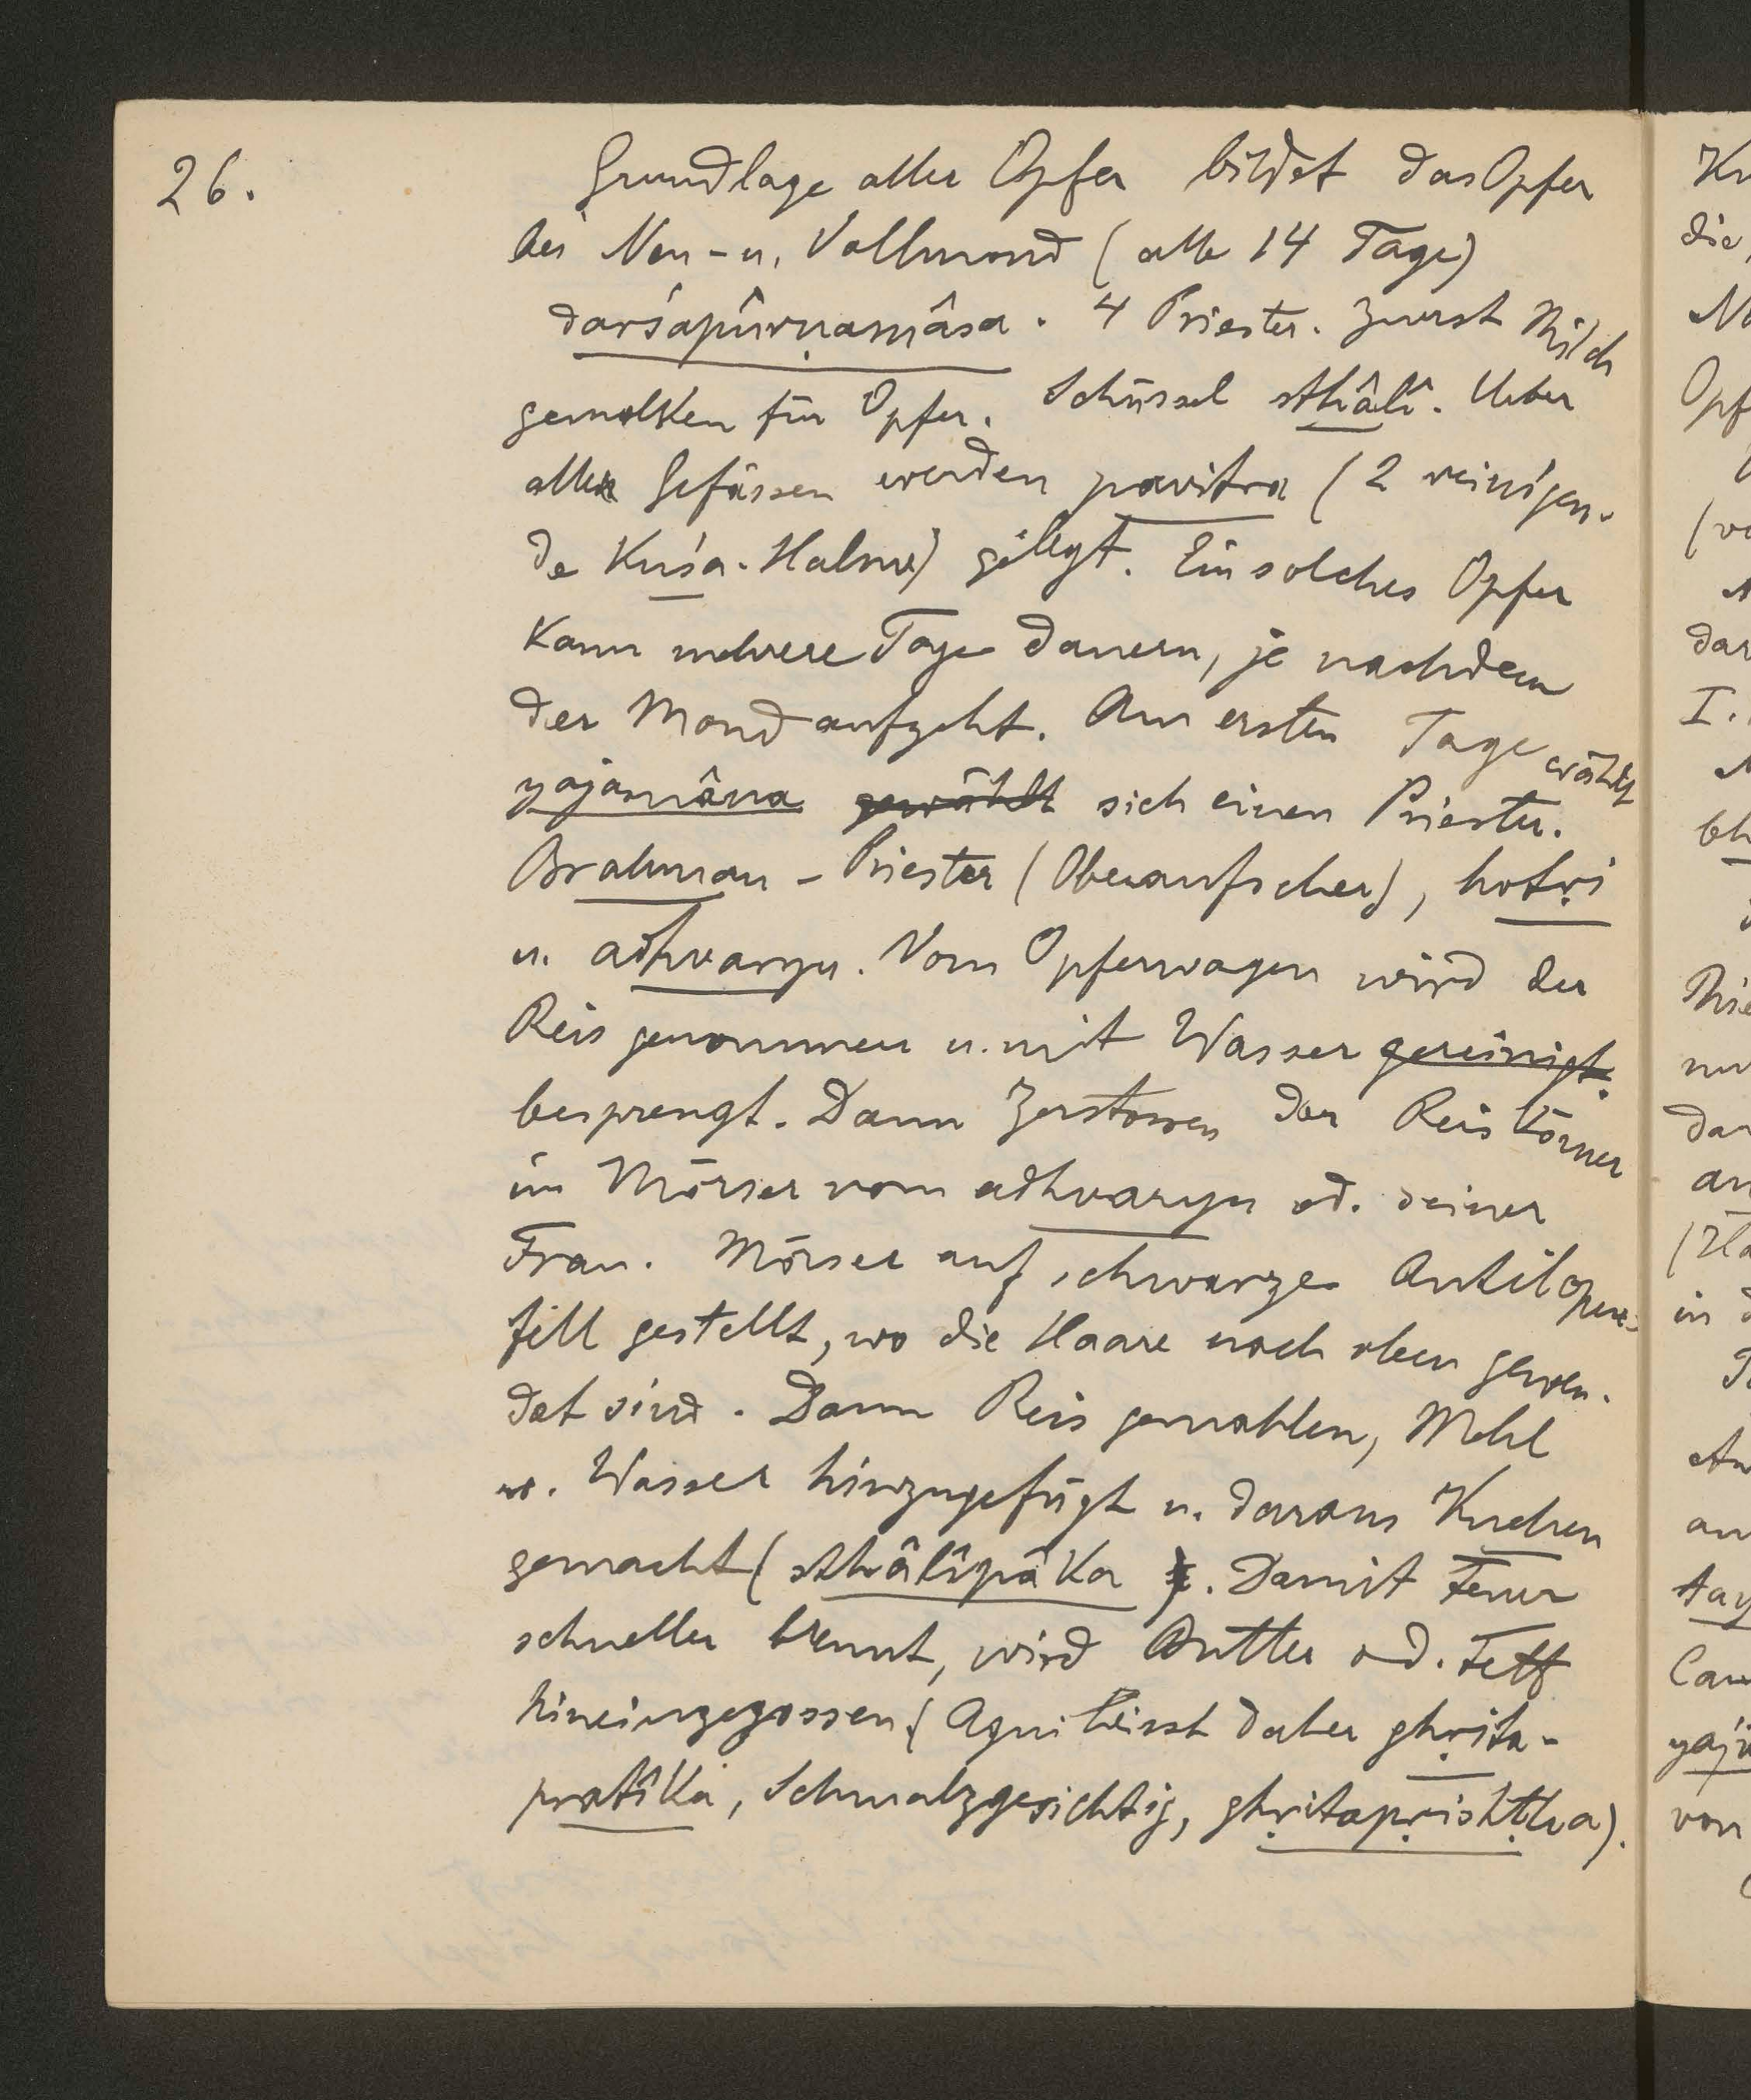 26.
Grundlage aller Opfer bildet das Opfer
bei Neu- u. Vollmond (alle 14 Tage)
darśapûrṇamâsa. 4 Priester. Zuerst Milch
gemolken für Opfer. Schüssel sthâlî. Ueber
allen Gefässen werden pavitra (2 reinigen-
de Kuśa-Halme) gelegt. Ein solches Opfer
kann mehrere Tage dauern, je nachdem
der Mond aufgeht. Am ersten Tage wählt
yajamâna gewählt sich einen Priester.
Brahman-Priester (Oberaufseher), hotṛi
u. adhvaryu. Vom Opferwagen wird der
Reis genommen u. mit Wasser gereinigt.
besprengt. Dann Zerstossen der Reiskörner
im Mörser vom adhvaryu od. seiner
Frau. Mörser auf schwarzes Antilopen-
fell gestellt, wo die Haare nach oben gewen-
det sind. Dann Reis gemahlen, Mehl
u. Wasser hinzugefügt u. daraus Kuchen
gemacht (sthâlîpâka). Damit Feuer
schneller brennt, wird Butter od. Fett
hineingegossen (Agni heisst daher ghṛita-
pratîka, Schmalzgesichtig, ghṛitapṛishṭha).
Ku
die
Opf
dar
I.
bh
da
an
in
an
tay
yaj
von